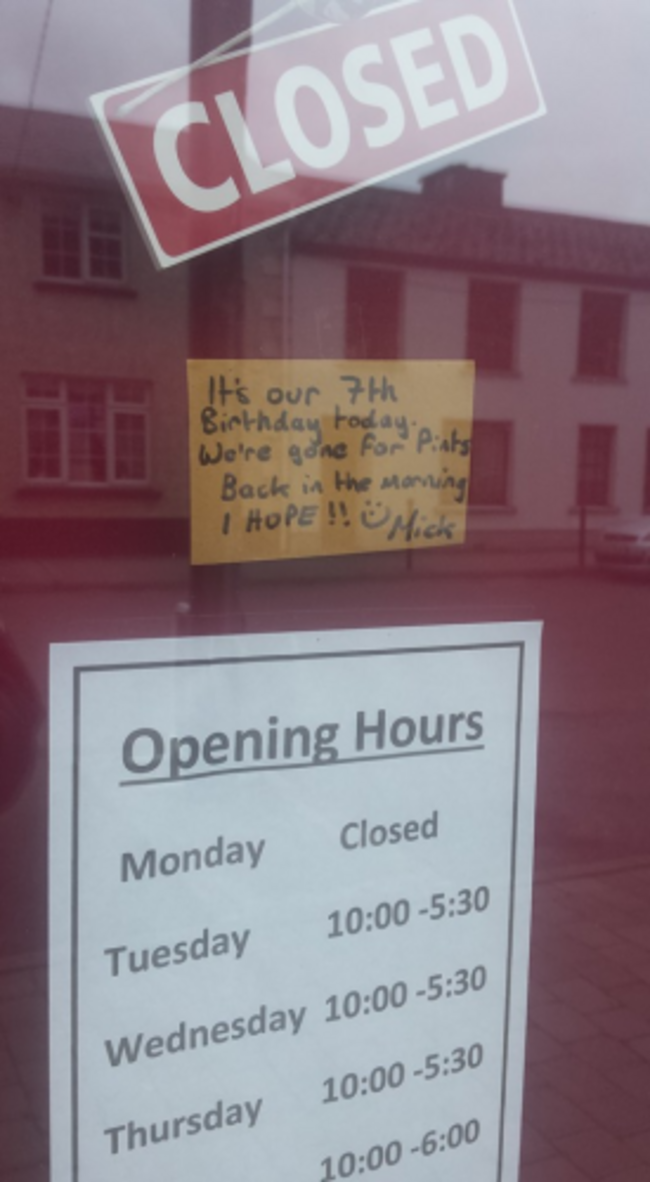 CLOSED
It's our 7th
Birthday today.
We're gone for Pints
Back in the morning
I HOPE !! Mick
Opening Hours
Monday Closed
Tuesday 10:00 -5:30
Wednesday 10:00 -5:30
Thursday 10:00 -5:30
10:00 -6:00